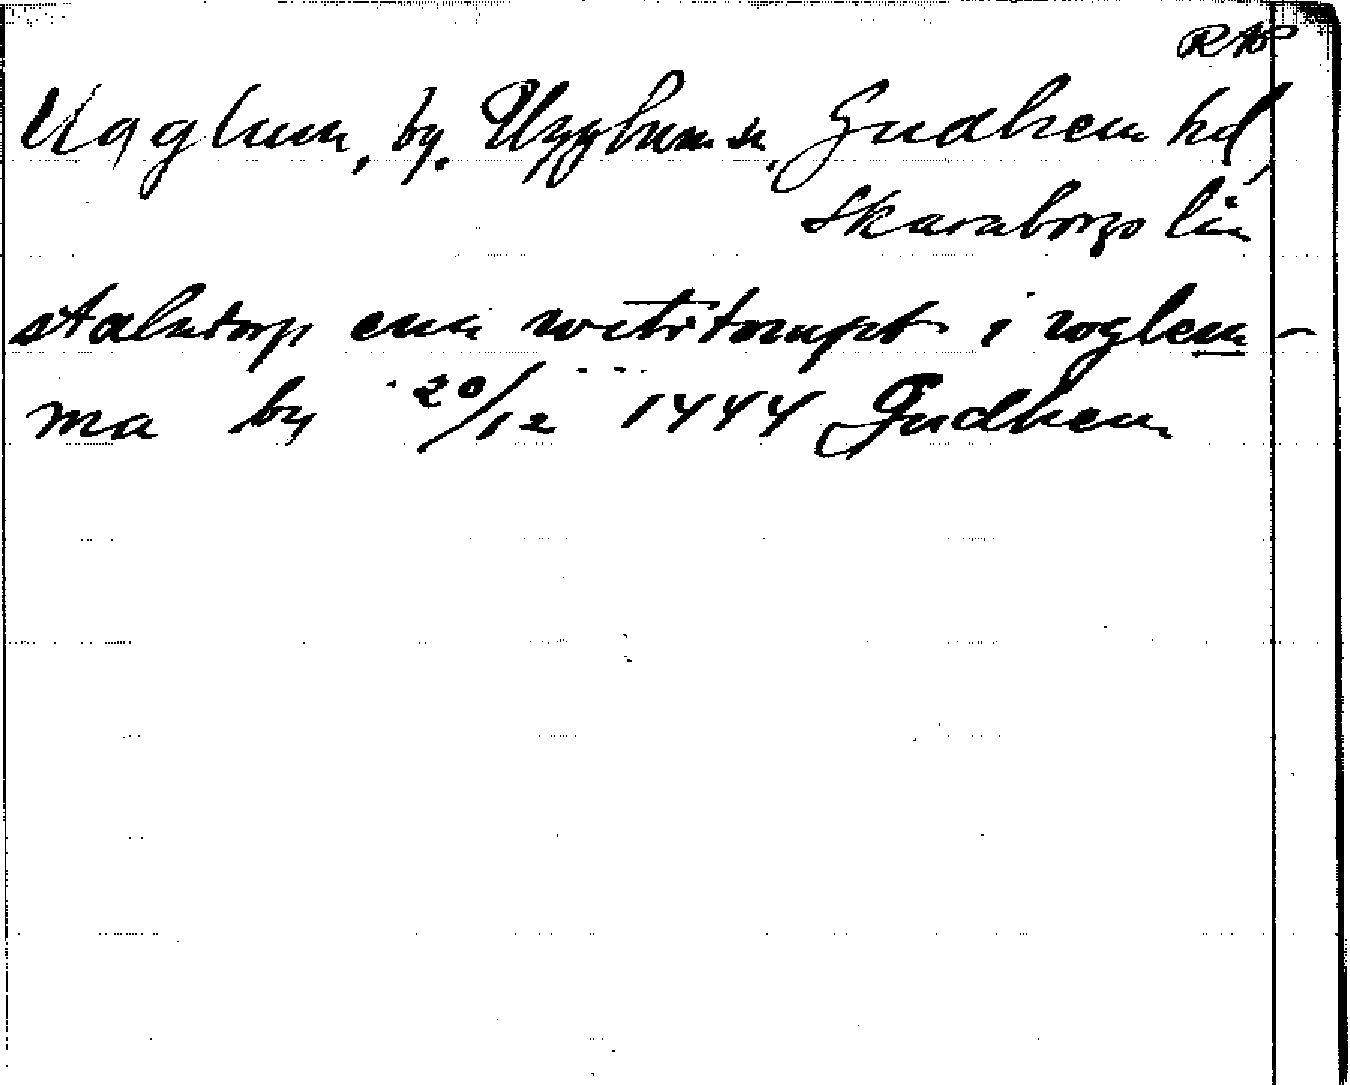 RAP
Ugglum, by. Ugglums sn, Gudhem hd,
Skaraborgs län
stalstorp ena 1 wglem-
ma by 20/12 1444 Gudhem